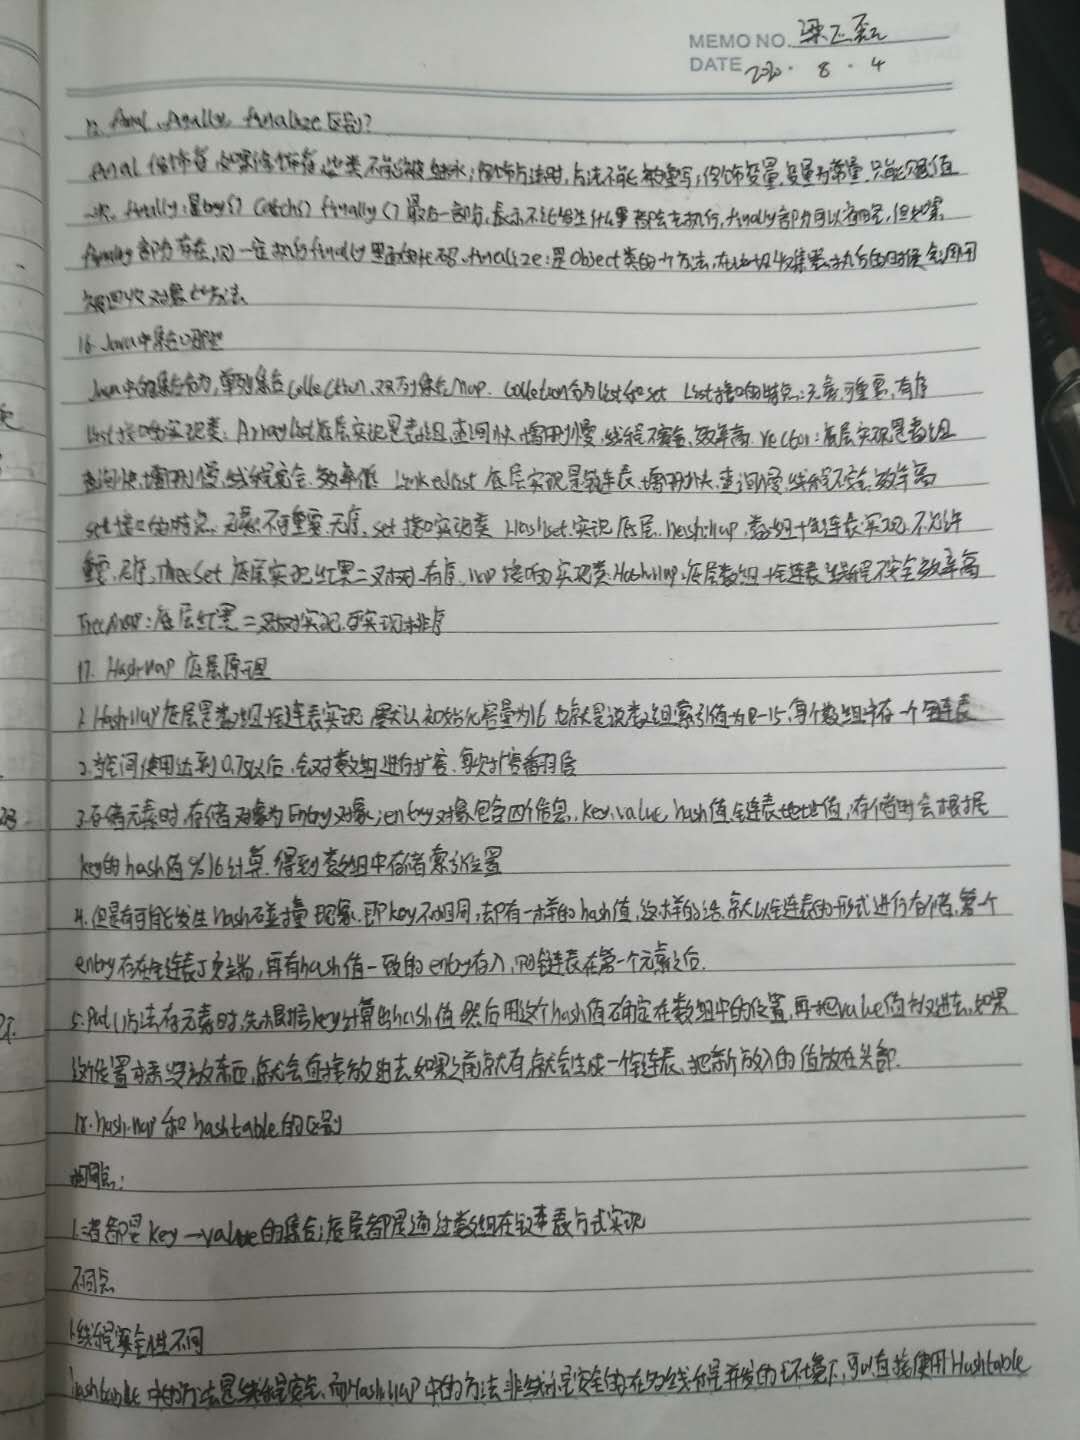 MEMO NO.
DATE 2020 · 8 · 4
final、finally、finalize区别?
final修饰符 如果修饰符,此类不能被继承,修饰方法时,方法不能被重写,修饰变量,变量为常量,只能赋值
一次. finally:是try{} catch{} finally{}最后一部分,表示不论发生什么事都会去执行,finally部分可以省略,但如果
finally部分存在,则一定执行finally里面的代码. finalize:是Object类的一个方法,在垃圾收集器执行的时候会调用
被回收对象的方法
16. Java中集合哪些
Java中的集合分为,单列集合Collection,双列集合Map. Colletion分为list和set List接口的特点:元素,可重复,有序
List接口的实现类:Arraylist底层实现是数组,查询快,增删慢,线程不安全,效率高. Vector:底层实现是数组
查询快,增删慢,线程安全,效率低 Linkedlist 底层实现是链表,增删快,查询慢,线程不安全,效率高
set接口的特点 元素:不可重复,无序,set接口实现类 Hashset.实现底层,hashmap,数组+链表实现,不允许
重复,无序,TreeSet 底层实现红黑二叉树,有序,map接口的实现类:Hashmap,底层数组+链表 线程不安全效率高
TreeMap:底层红黑二叉树实现,可实现排序
17. Hashmap 底层原理
1. Hashmap底层是数组+链表实现 默认初始化容量为16 也就是说数组索引值为0-15,每个数组中存一个链表
2.当空间使用达到0.75以后,会对数组进行扩容,每次扩容翻倍
3.存储元素时,存储对象为Entry对象,entry对象包含四个信息,key,value,hash值,链表地址值,存储时会根据
key的hash值%16计算,得到数组中存储索引位置
4.但是有可能发生hash碰撞现象,即key不相同,却有一样的hash值,这样的话,就以链表的形式进行存储,第一个
entry存在链表顶端,再有hash值一致的entry存入,则链表在第一个元素之后.
5.Put()方法存元素时,先根据key计算出hash值 然后用这个hash值确定在数组中的位置,再把value值放进去,如果
这个位置没放东西,就会直接放进去,如果之前就有,就会生成一个链表,把新放入的值放在头部.
18.hashmap和hashtable的区别
相同点:
1.二者都是key—value的集合;底层都是通过数组在链表方式实现
不同点
1.线程安全性不同
hashtable中的方法是线程安全,而Hashmap中的方法非线程安全的在多线程并发的环境下,可以直接使用Hashtable